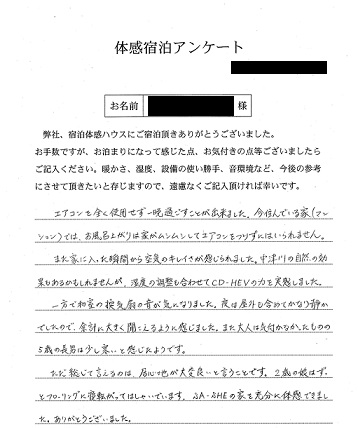 体感宿泊アンケート
お名前
様
弊社、宿泊体感ハウスにご宿泊頂きありがとうございました。
お手数ですが、お泊まりになって感じた点、お気付きの点等ございましたら
ご記入ください。暖かさ、湿度、設備の使い勝手、音環境など、今後の参考
にさせて頂きたいと存じますので、遠慮なくご記入頂ければ幸いです。
エアコンを全く使用せず一晩過ごすことが出来ました。今住んでいる家(マン
ション)では、お風呂上がりは家がムンムンしてエアコンをつけずにはいられません。
また家に入った瞬間から空気のキレイさが感じられました。中津川の自然の効
果もあるかもしれませんが、湿度の調整も合わせてCD-HEVの力を実感しました。
一方で和室の換気扇の音が気になりました。夜は屋外も含めてかなり静か
でしたので、余計に大きく聞こえるように感じました。また大人は気付かなかったものの
5歳の長男は少し寒いと感じたようです。
ただ総じて言えるのは、居心地が大変良いと言うことです。2歳の娘はずっ
とフローリングに寝転がってはしゃいでいます。 の家を充分に体感できまし
た。ありがとうございました。